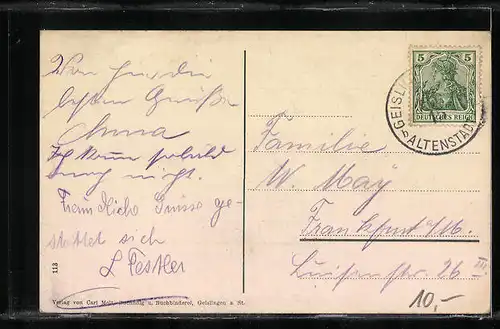 Von hier die
besten Grüße
Anna
Ich komme sobald
noch nicht.
Freundliche Grüsse ge-
stattet sich
L Festler
113
Verlag von Carl Maier, Buchhdlg u. Buchbinderei, Geislingen a St.
5 5
DEUTSCHES REICH
GEISLI
ALTENSTADT
Familie
W. May
Frankfurt a/M.
Luisenstr 26 III
10,-